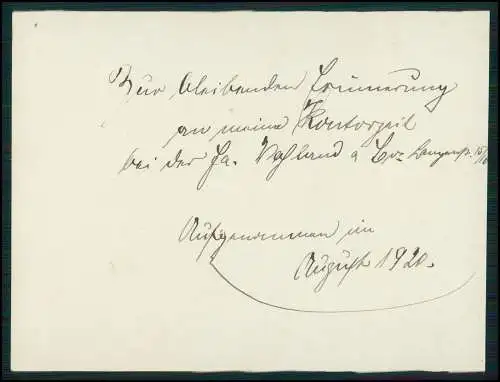 Zur bleibenden Erinnerung
an meine Kontorzeit
bei der Fa. Vahland & Co. Langenstr.
Aufgenommen im
August 1920.